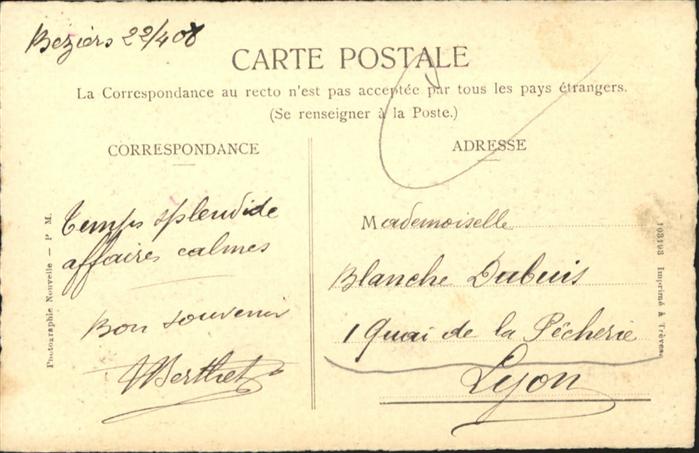 Beziers 22/4 08
CARTE POSTALE
La Correspondance au recto n'est pas acceptée par tous les pays étrangers.
(Se renseigner à la Poste.)
CORRESPONDANCE
Temps splendide
affaires calmes
Bon souvenir
Berthet
Photographie Nouvelle — P M.
ADRESSE
Mademoiselle
Blanche Dubuis
1 Quai de la Pêcherie
Lyon
Imprimé à Trèves